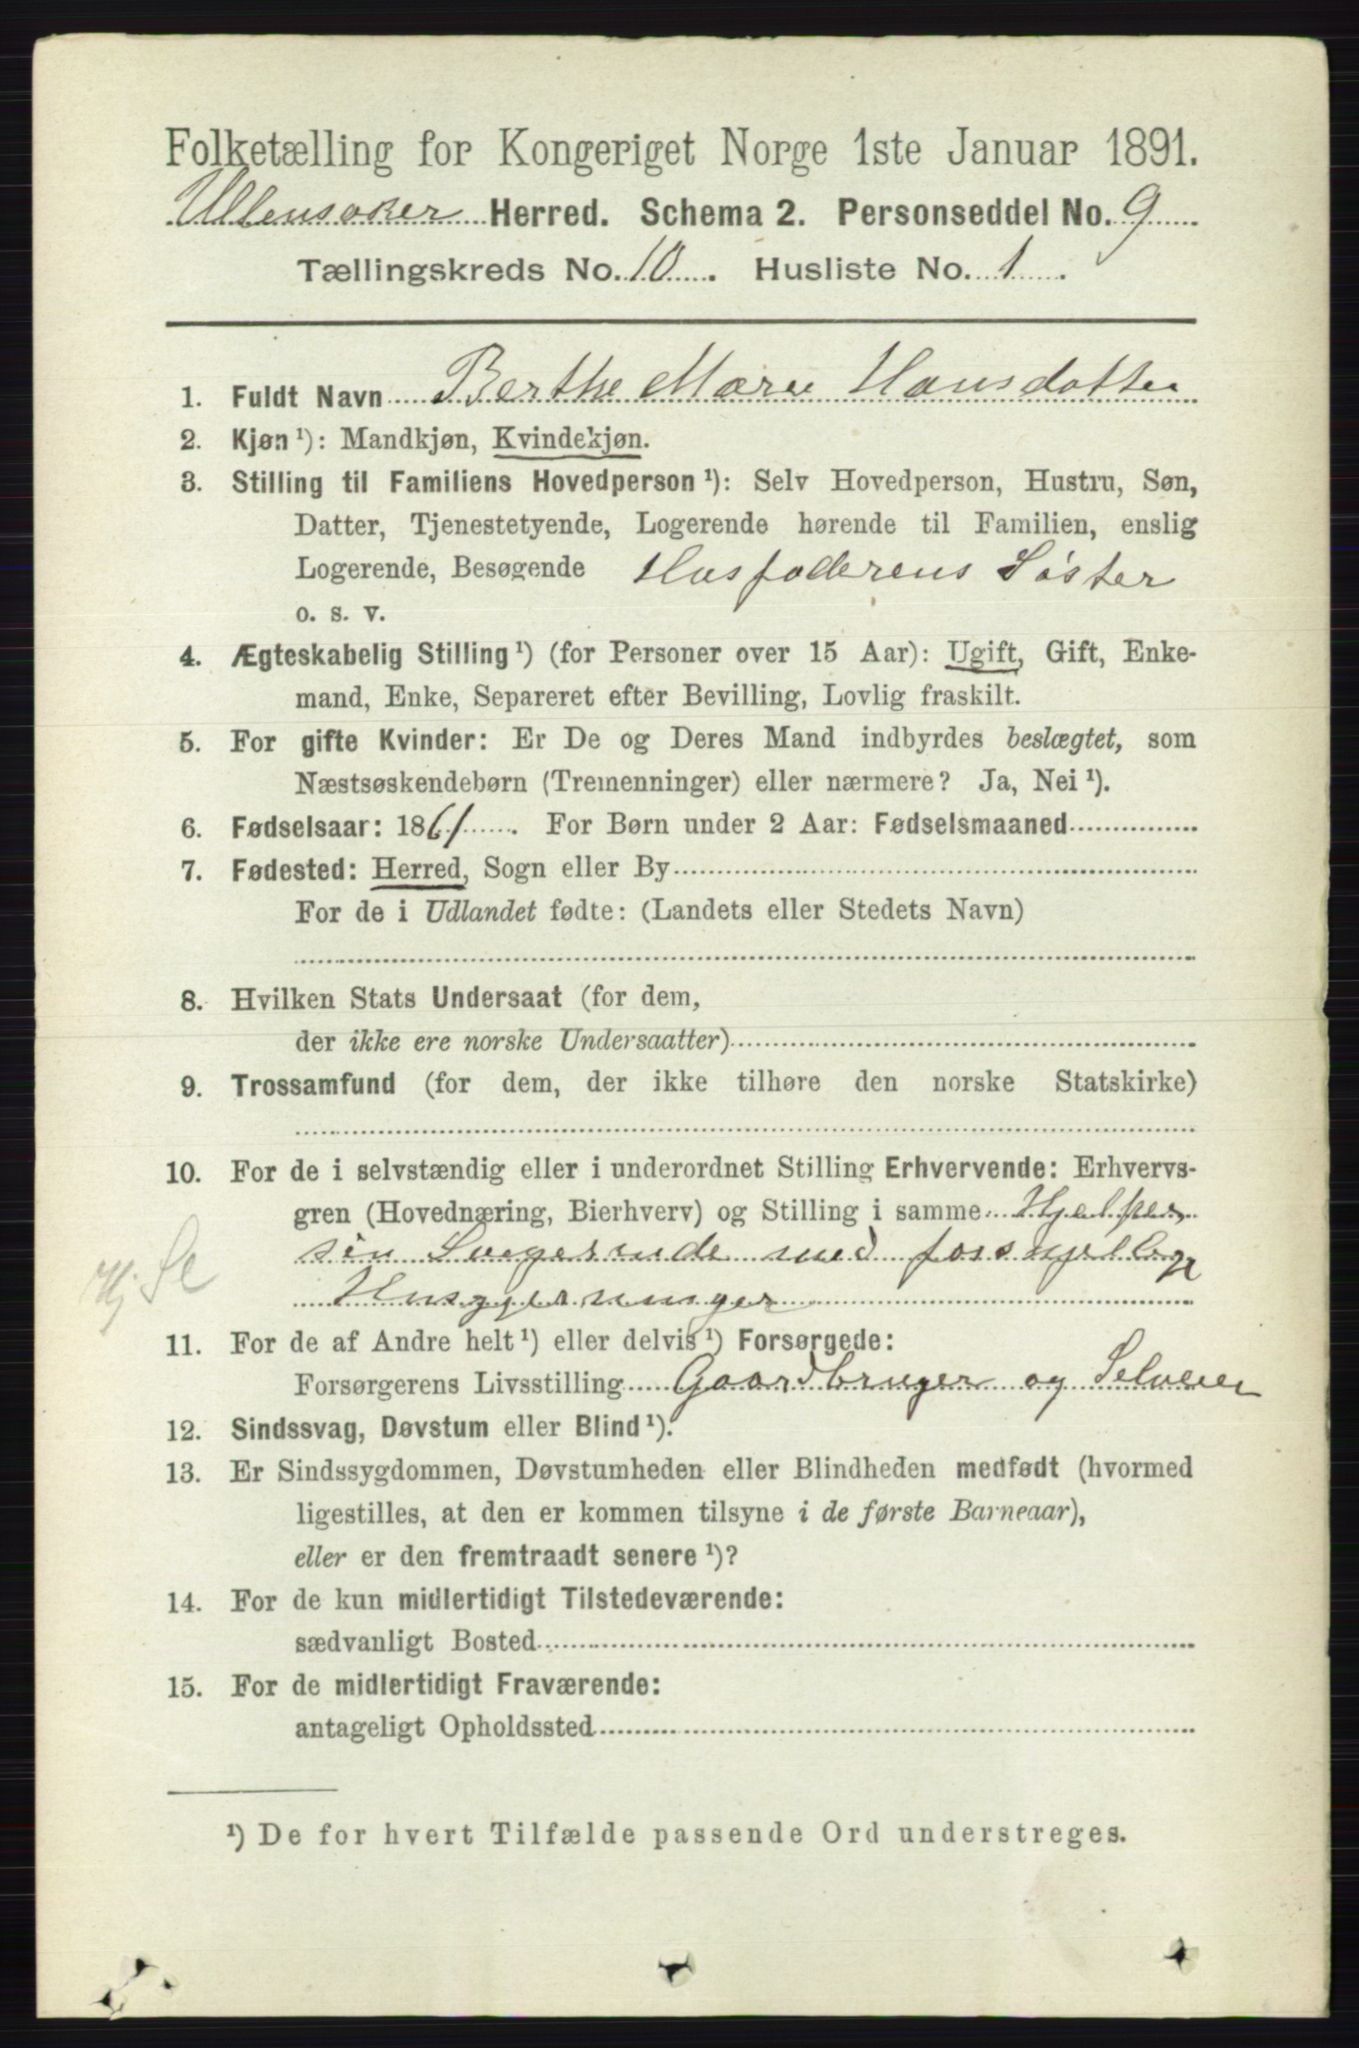 Folketælling for Kongeriget Norge 1ste Januar 1891.
Ullensaker Herred. Schema 2. Personseddel No. 9
Tællingskreds No. 10. Husliste No. 1.
1. Fuldt Navn Berthe Marie Hansdatter
2. Kjøn ¹): Mandkjøn, Kvindekjøn.
3. Stilling til Familiens Hovedperson ¹): Selv Hovedperson, Hustru, Søn,
Datter, Tjenestetyende, Logerende hørende til Familien, enslig
Logerende, Besøgende Husfaderens Søster
o. s. v.
4. Ægteskabelig Stilling ¹) (for Personer over 15 Aar): Ugift, Gift, Enke-
mand, Enke, Separeret efter Bevilling, Lovlig fraskilt.
5. For gifte Kvinder: Er De og Deres Mand indbyrdes beslægtet, som
Næstsøskendebørn (Tremenninger) eller nærmere? Ja, Nei ¹).
6. Fødselsaar: 1861. For Børn under 2 Aar: Fødselsmaaned
7. Fødested: Herred, Sogn eller By
For de i Udlandet fødte: (Landets eller Stedets Navn)
8. Hvilken Stats Undersaat (for dem,
der ikke ere norske Undersaatter)
9. Trossamfund (for dem, der ikke tilhøre den norske Statskirke)
10. For de i selvstændig eller i underordnet Stilling Erhvervende: Erhvervs-
gren (Hovednæring, Bierhverv) og Stilling i samme Hjelper
sin Svegerinde med forskjellige
Husgjerninger
Hj. Sl
11. For de af Andre helt ¹) eller delvis ¹) Forsørgede:
Forsørgerens Livsstilling Gaardbruger og Selveier
12. Sindssvag, Døvstum eller Blind ¹).
13. Er Sindssygdommen, Døvstumheden eller Blindheden medfødt (hvormed
ligestilles, at den er kommen tilsyne i de første Barneaar),
eller er den fremtraadt senere ¹)?
14. For de kun midlertidigt Tilstedeværende:
sædvanligt Bosted
15. For de midlertidigt Fraværende:
antageligt Opholdssted
¹) De for hvert Tilfælde passende Ord understreges.